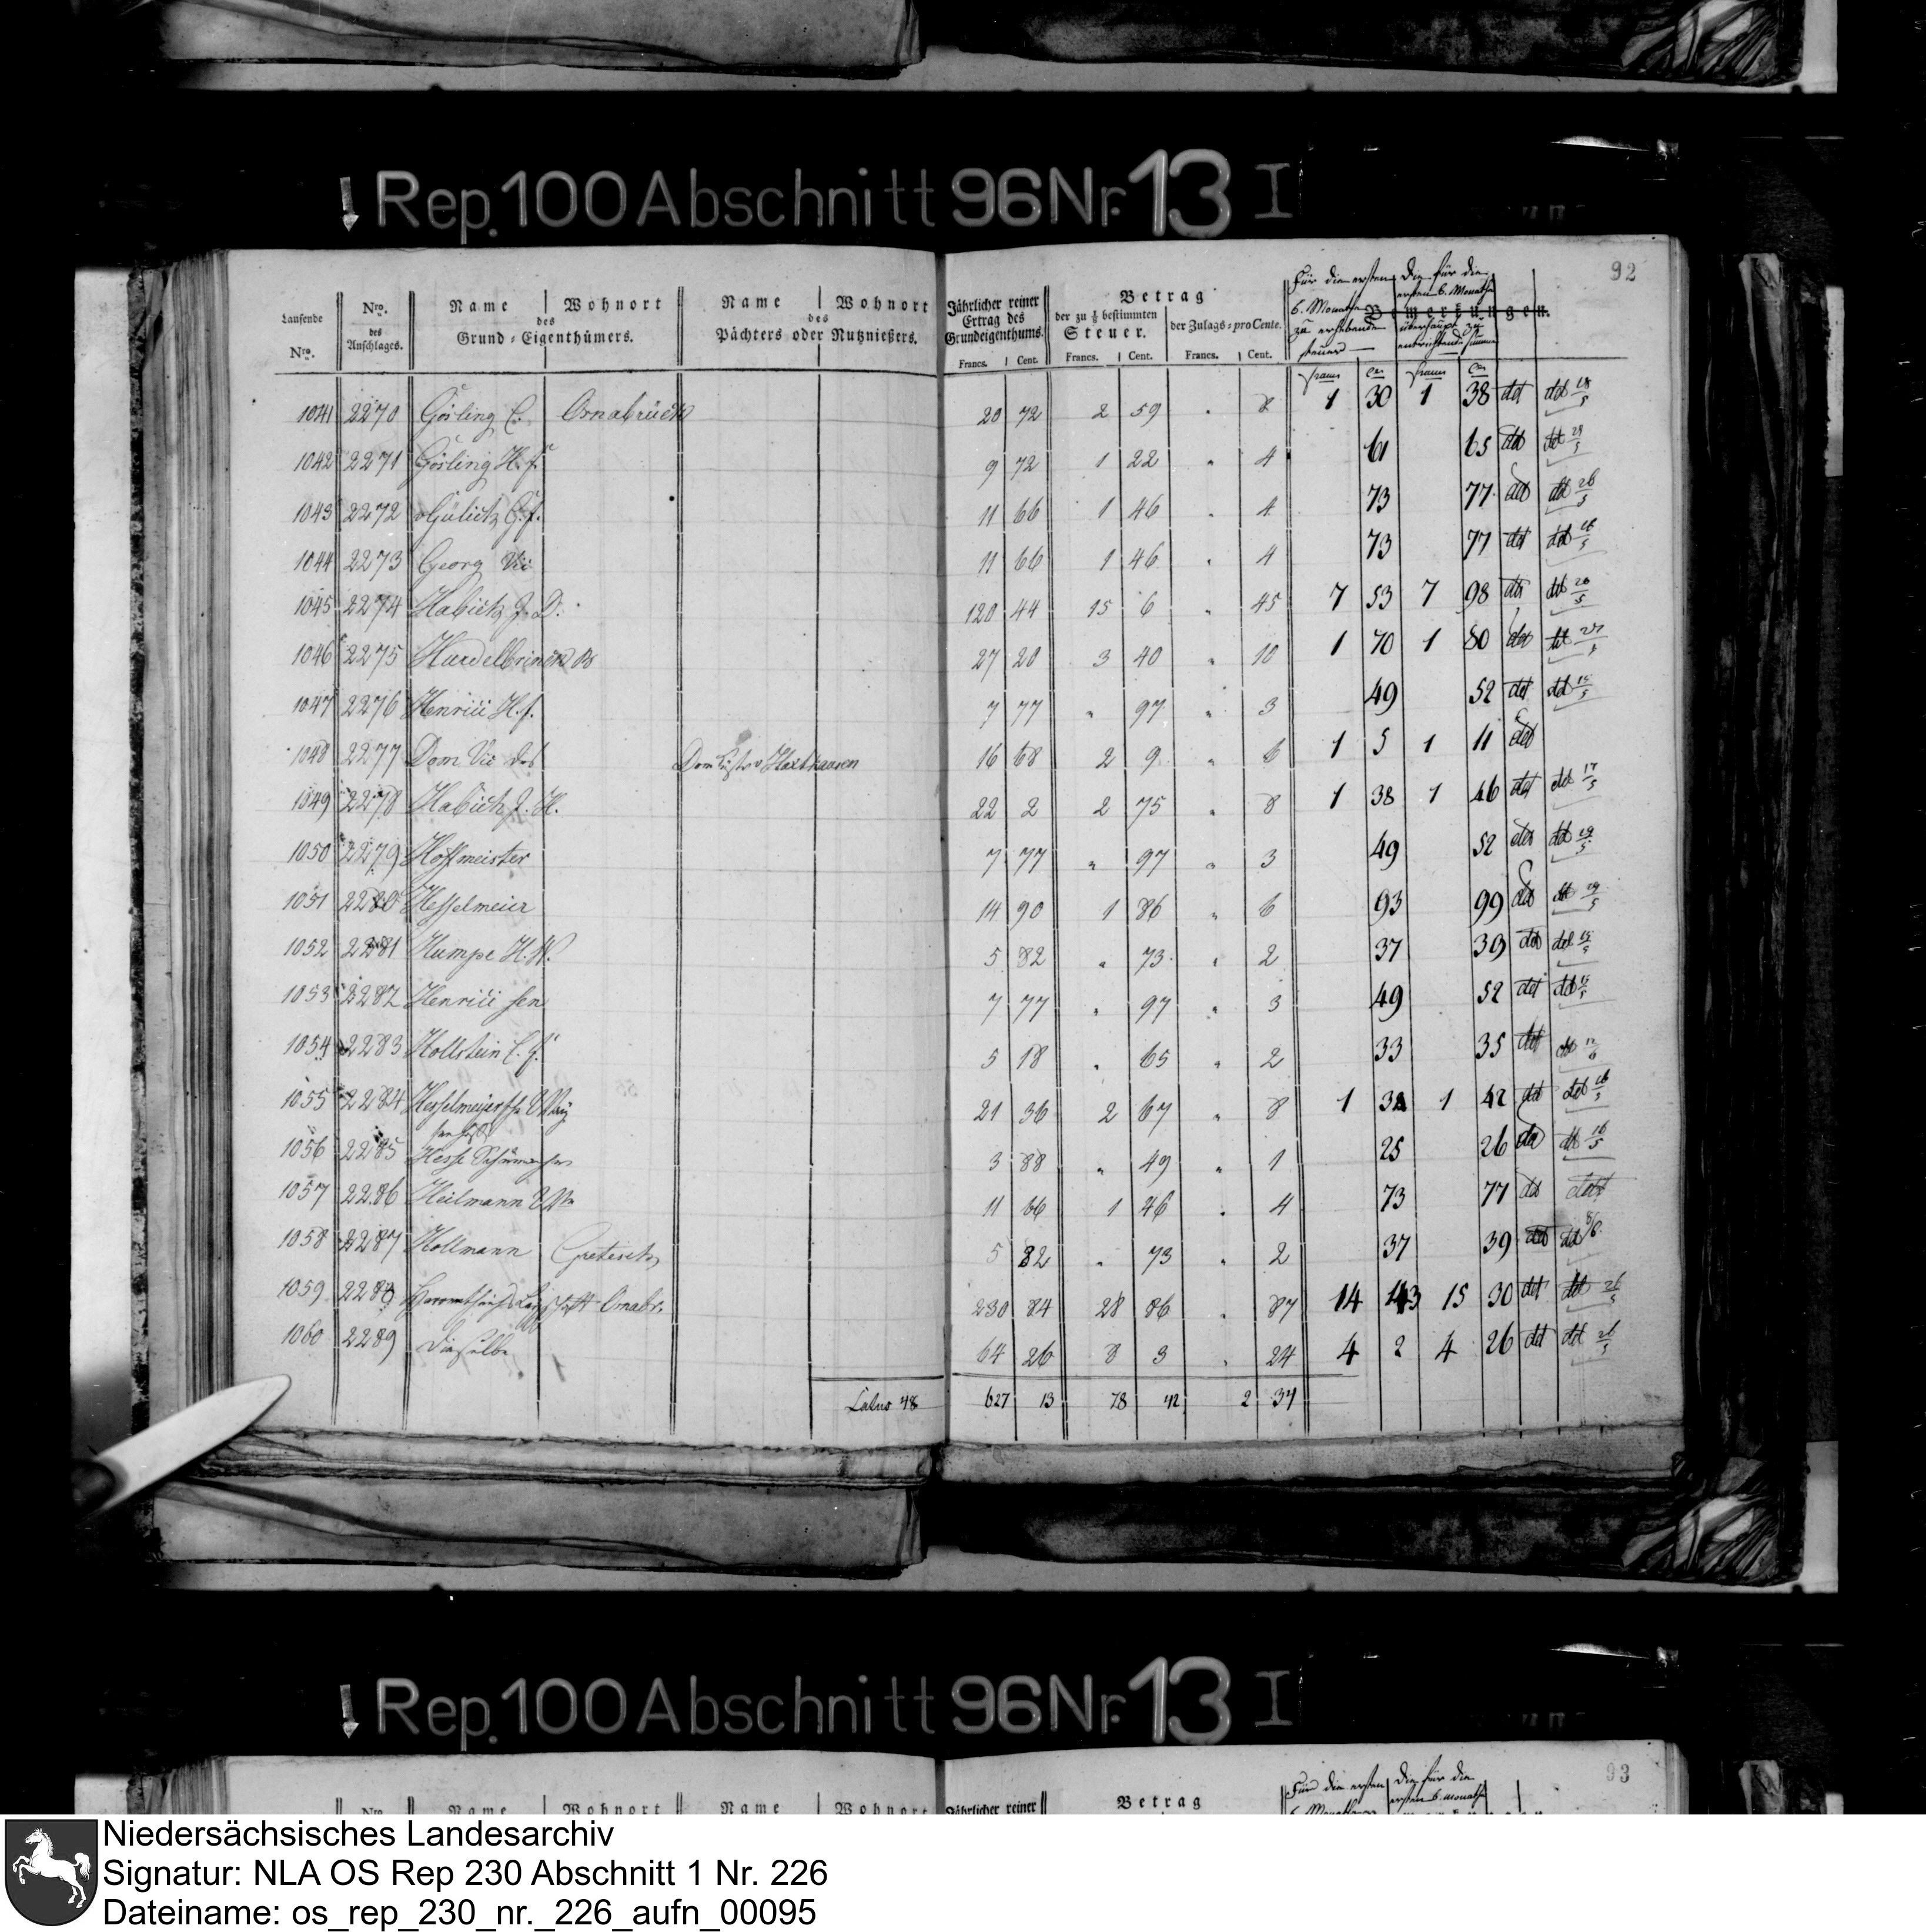 Rep. 100 Abschnitt 96 Nr. 13 I
92
Laufende Nro.
Nro. des Anschlages.
Name | Wohnort des Grund-Eigenthümers.
Name | Wohnort des Pächters oder Nutznießers.
Jährlicher reiner Ertrag des Grundeigenthums. Francs. Cent.
Betrag
der zu 1/8 bestimmten Steuer. Francs. Cent.
der Zulags-pro Cente. Francs. Cent.
Für die ersten 6. Monathe zu erhebende Steuer
Die für die ersten 6. Monathe überhaupt zu entrichtende Summe
Bemerkungen.
Francs Cen Francs Cen
1041 2270 Gösling C. Osnabrück 20 72 2 59 " 8 1 30 1 38 det det 28/5
1042 2271 Gösling H. J. 9 72 1 22 " 4 61 65 det det 29/5
1043 2272 11 66 1 46 " 4 73 77 det det 26/5
1044 2273 Georg Vic 11 66 1 46 " 4 73 77 det det
1045 2274 Habicht J. D. 120 44 15 6 " 45 7 53 7 98 det det
1046 2275 27 20 3 40 " 10 1 70 1 80 det det
1047 2276 Henrici H. J. 7 77 " 97 " 3 49 52 det det 15/5
1048 2277 Dom Vic Dom Küster Haxthausen 16 68 2 9 " 6 1 5 1 11 det
1049 2278 Habicht J. H. 22 2 2 75 " 8 1 38 1 46 det det 17/5
1050 2279 Hoffmeister 7 77 " 97 " 3 49 52 det det 29/5
1051 2280 Hesselmeier 14 90 1 86 " 6 93 99 det det 29/5
1052 2281 Humpe H. W. 5 82 " 73 " 2 37 39 det det 15/5
1053 2282 Henrici sen 7 77 " 97 " 3 49 52 det det
1054 2283 Hollstein C. G. 5 18 " 65 " 2 33 35 det det
1055 2284 21 36 2 67 " 8 1 34 1 42 det det 16/5
1056 2285 Hesse 3 88 " 49 " 1 25 26 det det 16/5
1057 2286 Heilmann 11 66 1 46 " 4 73 77 det det
1058 2287 Hollmann Gretesch 5 82 " 73 " 2 37 39 det det 8/6
1059 2288 Osnabr. 230 84 28 86 " 87 14 43 15 30 det det 26/5
1060 2289 Dieselbe 64 26 8 3 " 24 4 2 4 26 det det 26/5
Latus 48 627 13 78 42 2 37
Rep. 100 Abschnitt 96 Nr. 13 I
93
Nro. Name Wohnort Name Wohnort Jährlicher reiner Betrag
Für die ersten Die für die
ersten 6. Monathe
Niedersächsisches Landesarchiv
Signatur: NLA OS Rep 230 Abschnitt 1 Nr. 226
Dateiname: os_rep_230_nr._226_aufn_00095